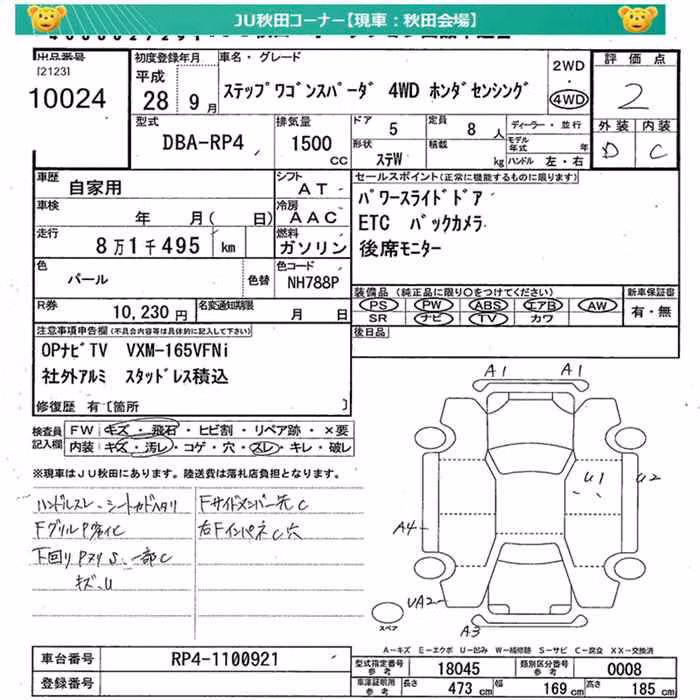 JU秋田コーナー【現車：秋田会場】
出品番号
[2123]
10024
初度登録年月
平成
28 年 9 月
車名・グレード
ステップワゴンスパーダ 4WD ホンダセンシング
2WD
・
4WD
評価点
2
外装 内装
D C
型式
DBA-RP4
排気量
1500
CC
ドア
5
定員
8 人
形状
ステW
積載
kg
ディーラー・並行
モデル年式 年
ハンドル 左・右
車歴
自家用
シフト
AT
車検
年 月( 日)
冷房
AAC
走行
8万1千495 km
燃料
ガソリン
色
パール
色替
色コード
NH788P
R券
10,230円
名変通知期限
月 日
セールスポイント(正常に機能するものに限ります)
パワースライドドア
ETC バックカメラ
後席モニター
装備品 (純正品に限り○をつけてください)
PS PW ABS エアB AW
SR ナビ TV カワ
新車保証書
有・無
後日品
注意事項申告欄(不具合内容等は具体的に記入して下さい)
OPナビTV VXM-165VFNi
社外アルミ スタッドレス積込
修復歴 有〔箇所 〕
検査員記入欄
FW キズ・飛石・ヒビ割・リペア跡・×要
内装 キズ・汚レ・コゲ・穴・スレ・キレ・破レ
※現車はJU秋田にあります。陸送費は落札店負担となります。
ハンドルスレ、シートカドヘタリ
Fグリル
下回りPヌリS、一部C
キズ、U
Fサイドメンバー先C
右FインパネC穴
A1 A1
U1 U2
A4
UA2
A3
スペア
A－キズ E－エクボ U－凹み W－補修跡 S－サビ C－腐食 XX－交換済
車台番号
RP4-1100921
登録番号
型式指定番号 参考
18045
類別区分番号 参考
0008
車庫証明用 参考
長さ 473 cm
幅 169 cm
高さ 185 cm